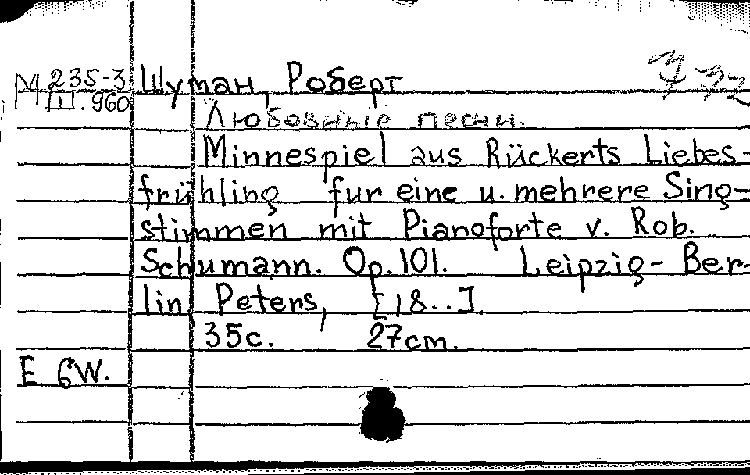 М 235-3 Шуман, Роберт
III.960
Любовные песни.
Minnespiel aus Rückerts Liebes-
frühling für eine u. mehrere Sing-
stimmen mit Pianoforte v. Rob.
Schumann. Op. 101. Leipzig-Ber-
lin, Peters, [18..].
35с. 27cm.
E GW.